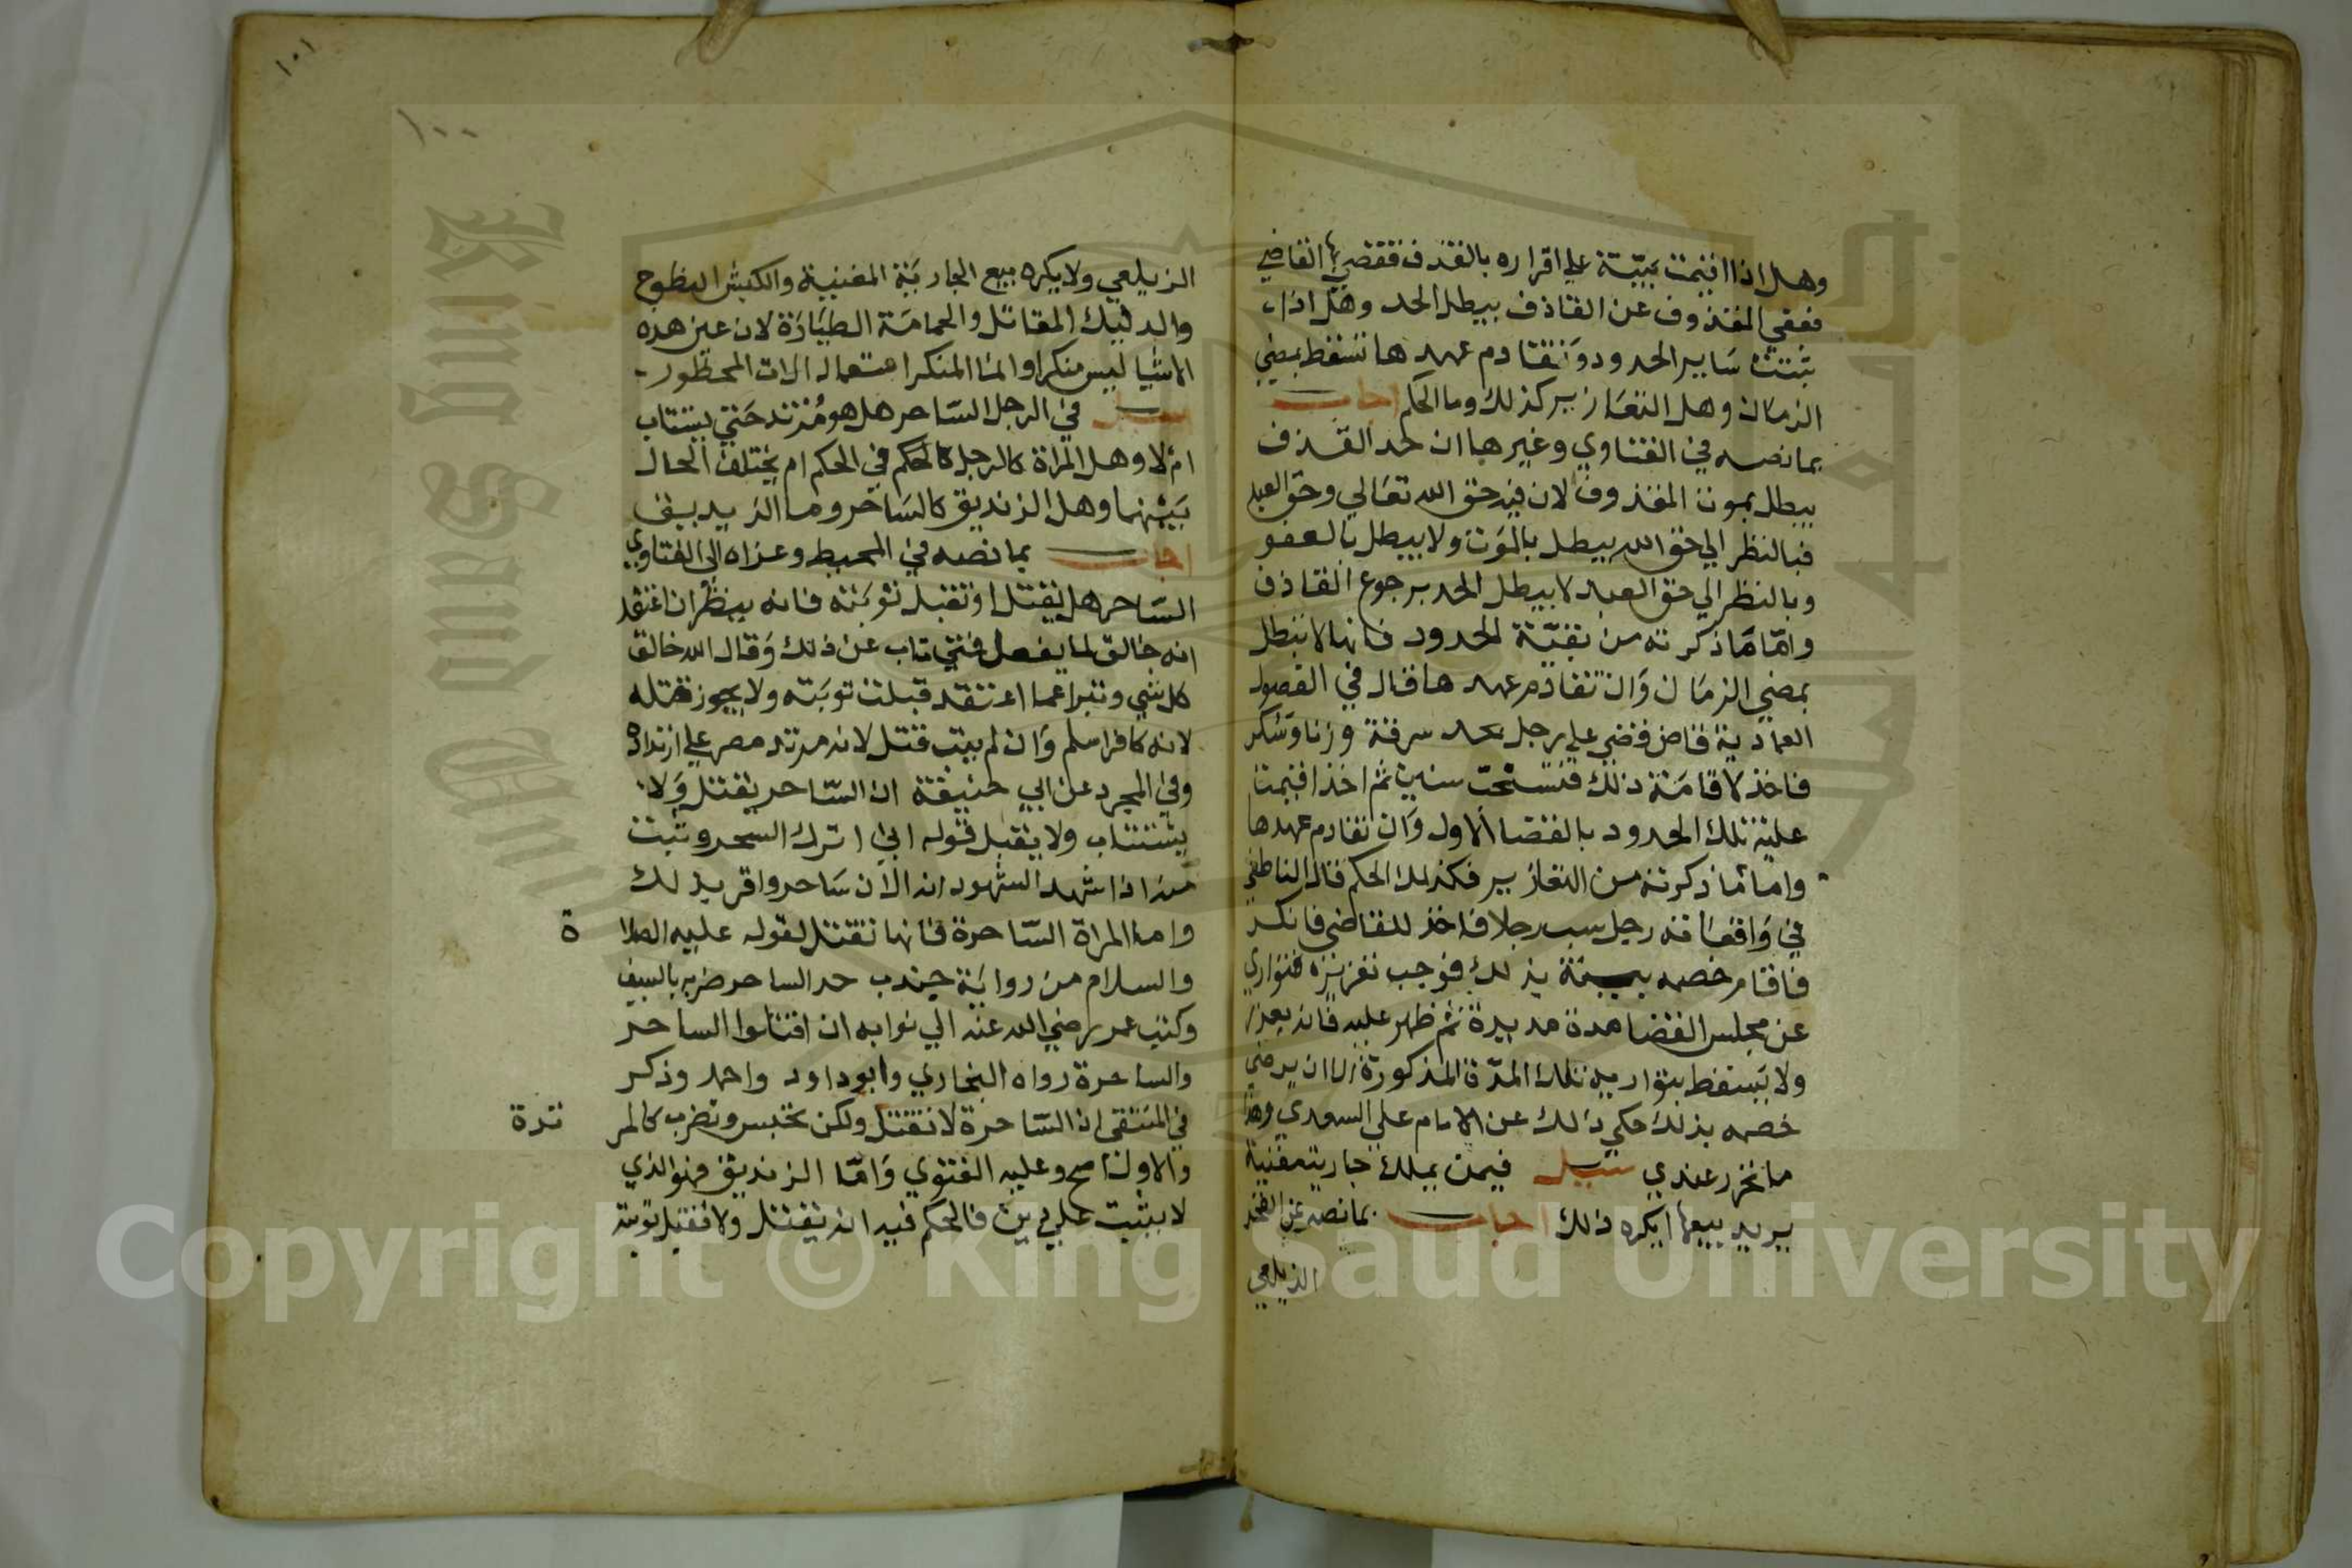 وهل اذا اقيمت بينة علي اقراره بالقذف فقضي بها القاضي
فعفي المقذوف عن القاذف يبطل الحد وهل اذا
ثبتت ساير الحدود وتقادم عهدها تسقط بمضي
الزمان وهل التعازير كذلك وما الحكم اجاب
بما نصه في الفتاوي وغيرها ان حد القذف
يبطل بموت المقذوف لان فيه حق الله تعالي وحق العبد
فبالنظر الي حق الله يبطل بالموت ولا يبطل بالعفو
وبالنظر الي حق العبد لا يبطل الحد برجوع القاذف
واما ما ذكرته من بقية الحدود فانها لا تبطل
بمضي الزمان وان تقادم عهدها قال في الفصول
العمادية قاض قضي علي رجل بحد سرقة وزنا وسكر
فاخذ لاقامة ذلك سنين ثم اخذ اقيمت
عليه تلك الحدود بالقضا الاول وان تقادم عهدها
واما ما ذكرته من التعازير فكذلك الحكم قال الناطفي
في واقعاته رجل سب رجلا فاخذ للقاضي فانكر
فاقام خصمه بينة بذلك فوجب تعزيزه فتواري
عن مجلس القضا مدة مديدة ثم ظهر عليه فانه يعزر
ولا يسقط بتواريه تلك المدة المذكورة الا ان يرضي
خصمه بذلك حكي ذلك عن الامام علي السعدي وهذا
ما تحرر عندي سيل فيمن يملك جارية مغنية
يريد بيعها ايكره ذلك اجاب بما نصه
الزيلعي
١٠١
١٠٠
الزيلعي ولا يكره بيع الجارية المغنية والكبش النطوح
والديك المقاتل والحمامة الطيارة لان عين هذه
الاشيا ليس منكرا وانما المنكر استعمال الات المحظور
سيل في الرجل الساحر هل هو مرتد حتي يستتاب
ام لا وهل المراة كالرجل كالحكم في الحكم ام يختلف الحال
بينهما وهل الزنديق كالساحر وما الزيديف
اجاب بما نصه في المحيط وعزاه الي الفتاوي
الساحر هل يقتل او تقبل توبته فانه ينظر ان اعتقد
انه خالق لما يفعل فتي تاب عن ذلك وقال الله خالق
كل شي وتبرا عما اعتقد قبلت توبته ولا يجوز قتله
لانه كافر اسلم وان لم يتب قتل لانه مرتد مصر علي ارتداده
وفي المجرد عن ابي حنيفة ان الساحر يقتل ولا
يستتاب ولا يقبل قوله اني اترك السحر وتبت
منه اذا شهد الشهود انه الان ساحر واقر بذلك
واما المراة الساحرة فانها تقتل لقوله عليه الصلا ة
والسلام من رواية جندب حد الساحر ضربه بالسيف
وكتب عمر رضي الله عنه الي نوابه ان اقتلوا الساحر
والساحرة رواه البخاري وابو داود واحمد وذكر
في المنتقي ان الساحرة لا تقتل ولكن تحبس وتضرب كالمر تدة
والاول اصح وعليه الفتوي واما الزنديق فهو الذي
لا يثبت علي دين فالحكم فيه انه يقتل ولا تقبل توبته
King Saud University
Copyright © King Saud University